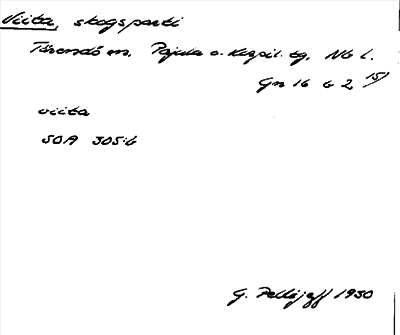 Viita, skogsparti
Tärendö sn, Pajala o. Korpil. tg, Nb l.
Gn 16 b 2 15)
viita
SOA 305:6
G. Pellijeff 1950